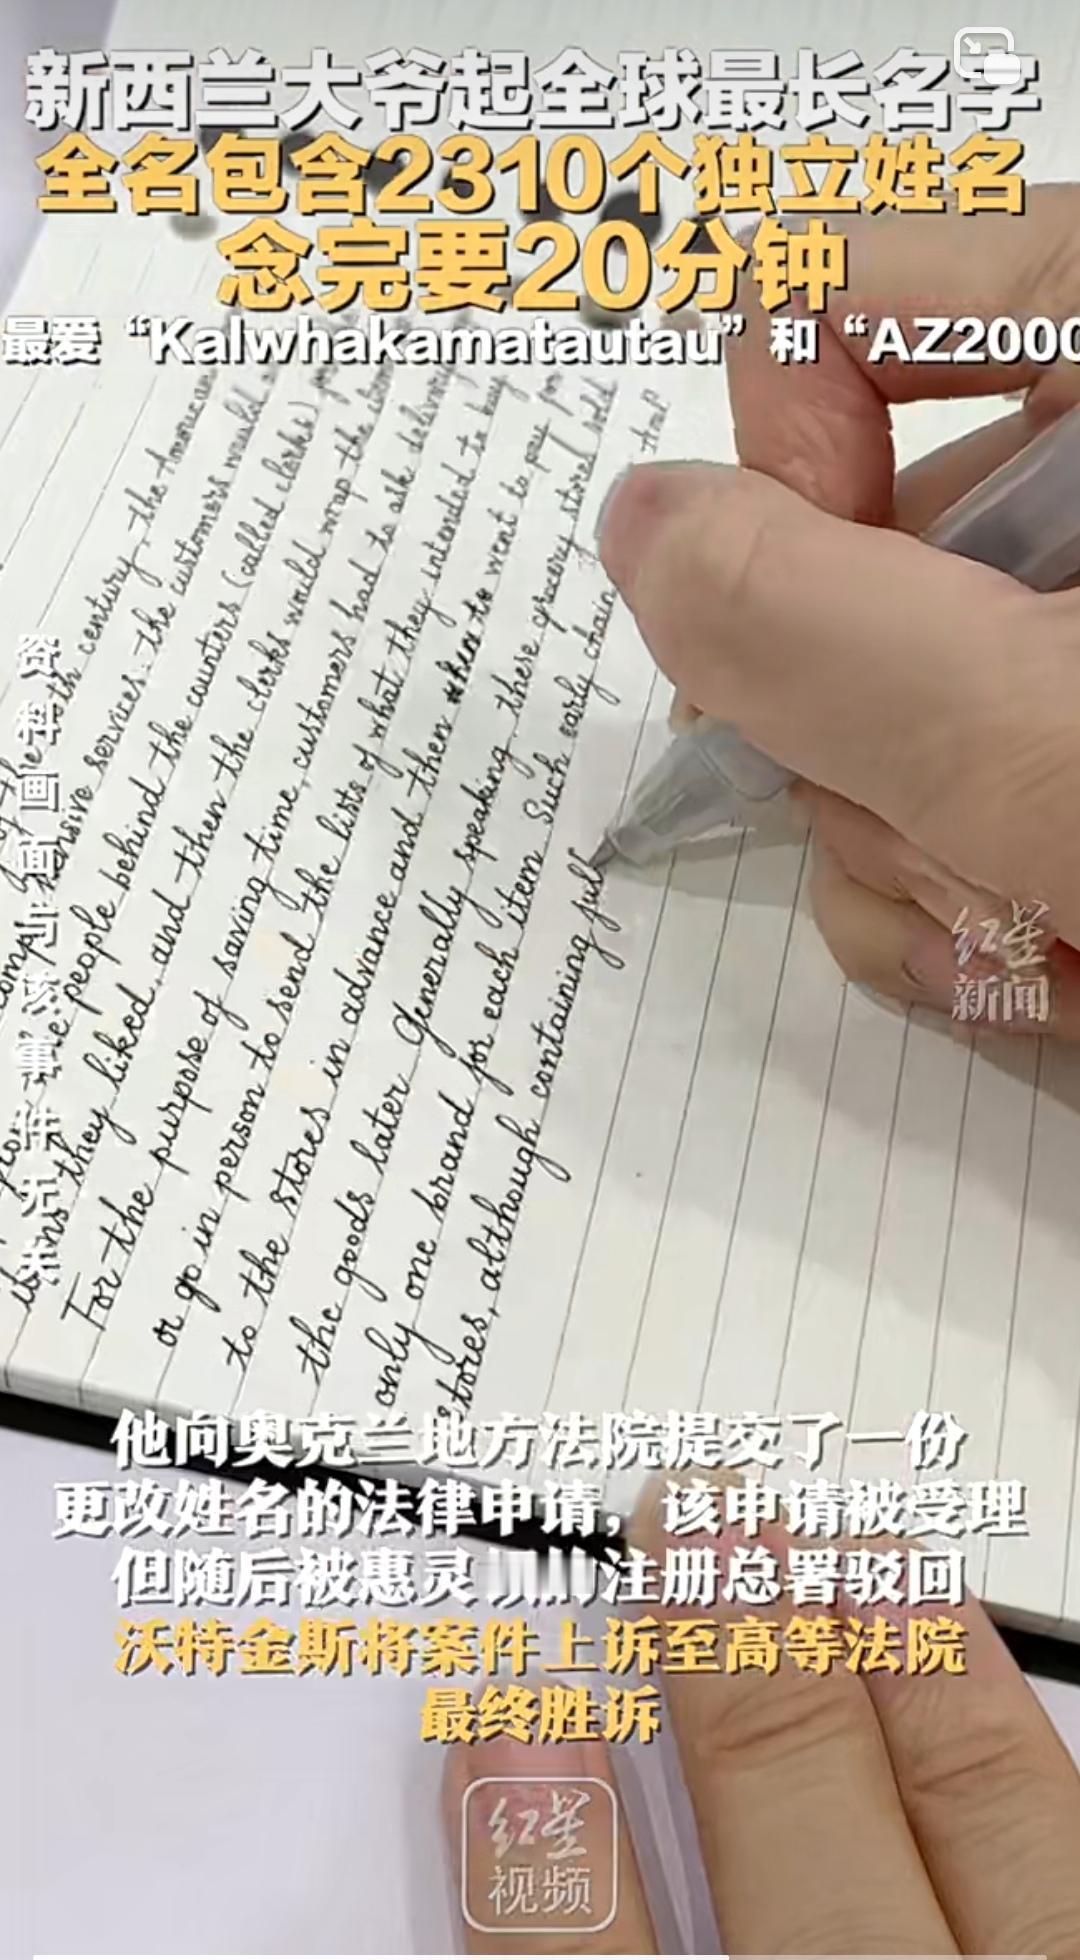 新西兰大爷起全球最长名字
全名包含2310个独立姓名
念完要20分钟
最爱“Kalwhakamatautau”和“AZ2000
资料画面与该事件无关
century, the
services: the customers would
people behind the counters (called clerks)
they liked, and then the clerks would wrap the
For the purpose of saving time, customers had to ask
or go in person to send the lists of what they intended to buy
to the stores in advance and then to went to pay for
the goods later. Generally speaking, these grocery stores sold
only one brand for each item. Such early chain
stores, although containing full
红星
新闻
他向奥克兰地方法院提交了一份
更改姓名的法律申请，该申请被受理
但随后被惠灵 注册总署驳回
沃特金斯将案件上诉至高等法院
最终胜诉
红星
视频